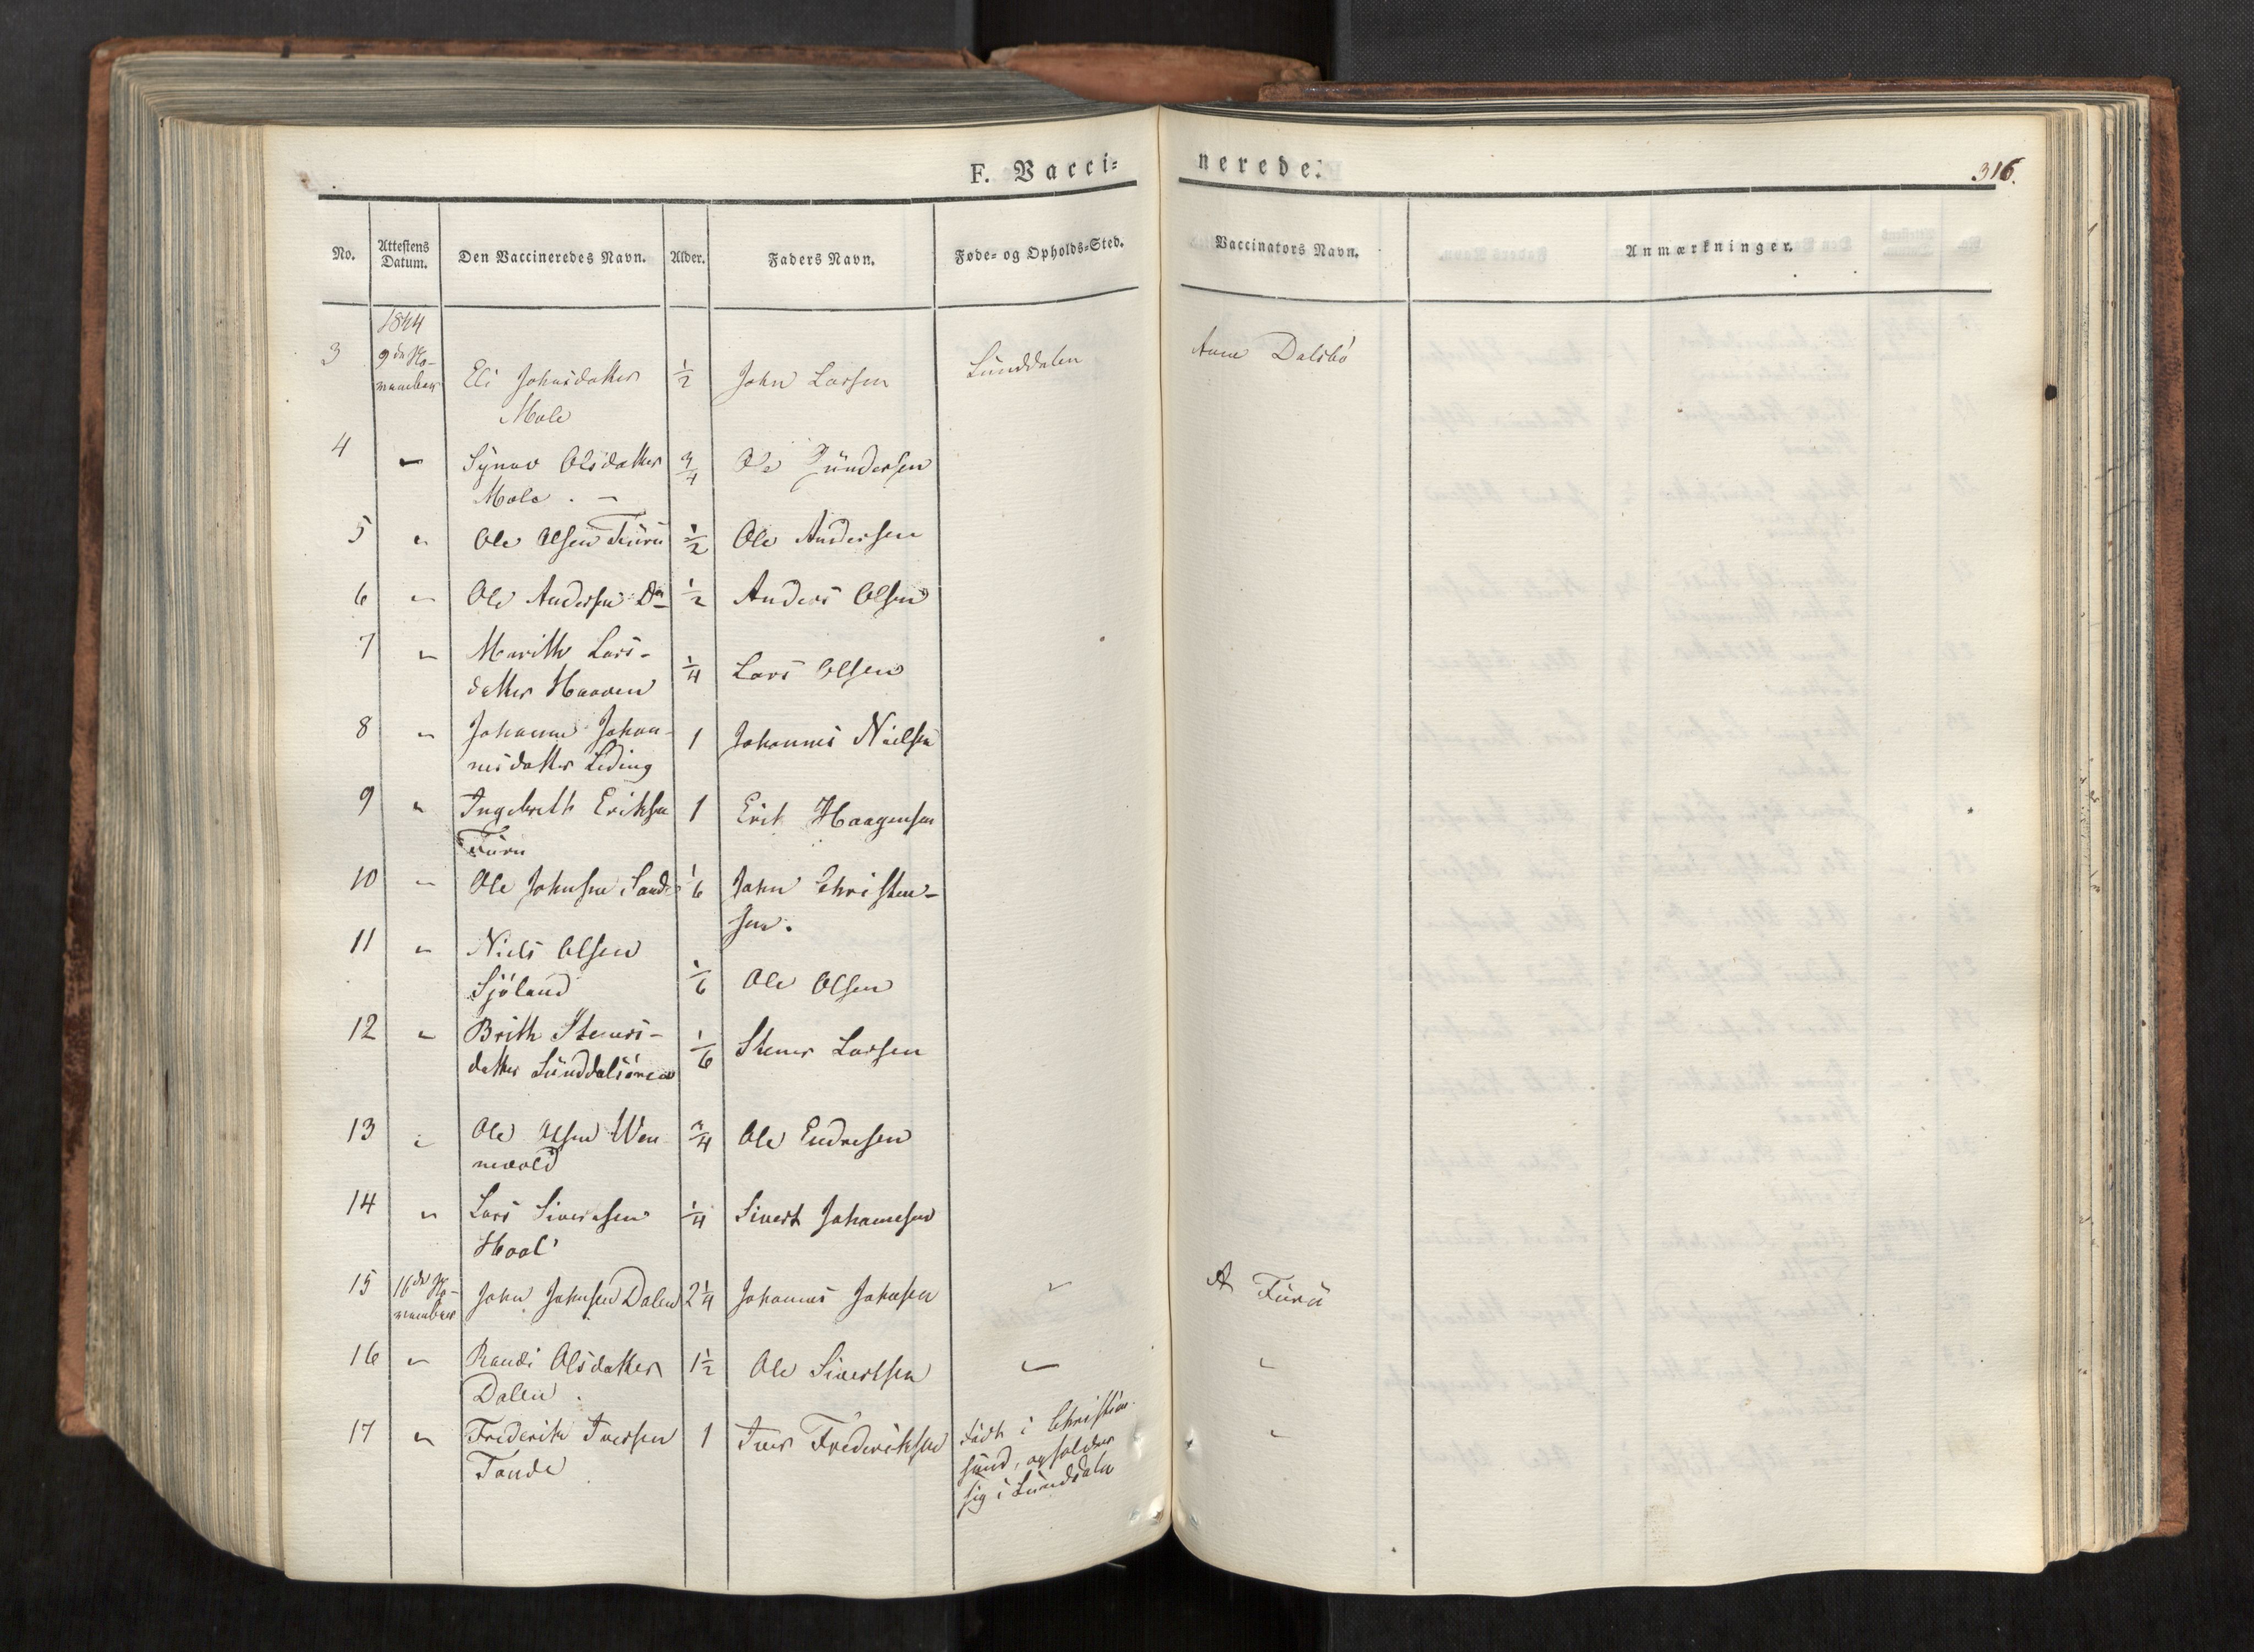 F. Vacci=
nerede.
316.
No.
Attestens
Datum.
Den Vaccineredes Navn.
Alder.
Faders Navn.
Føde= og Opholds=Sted.
Vaccinators Navn.
Anmærkninger.
1844
3 9de No-
vember Eli Johnsdatter 1/2 John Larsen Sünddalen Anne Dalsbø
Mæle
4 " Synøv Olsdatter 3/4 Ole Gündersen
Mæle. -
5 " Ole Olsen Fürü 1/2 Ole Andersen
6 " Ole Andersen Do 1/2 Anders Olsen
7 " Marith Lars-
datter Haaven 1/4 Lars Olsen
8 " Johanne Johan-
nesdatter Leding 1 Johannes Nielsen
9 " Ingebrith Eriksen 1 Erik Haagensen
Fürü
10 " Ole Johnsen Sande 1/6 John Christen-
sen.
11 " Niels Olsen
Sjöland 1/6 Ole Olsen
12 " Brith Steners-
datter Sünddalsören 1/6 Stener Larsen
13 " Ole Olsen Wen- 3/4 Ole Endresen
nevold
14 " Lars Sivertsen 1/4 Sivert Johannesen
Hoel
15 16de No-
vember John Johnsen Dalen 2 1/4 Johannes Johnsen " A Fürü
16 " Randi Olsdatter 1 1/2 Ole Sivertsen " "
Dalen.
17 " Frederik Iversen 1 Iver Frederiksen Födt i Christian- "
Tande
sünd, opholder
sig i Sünddalen